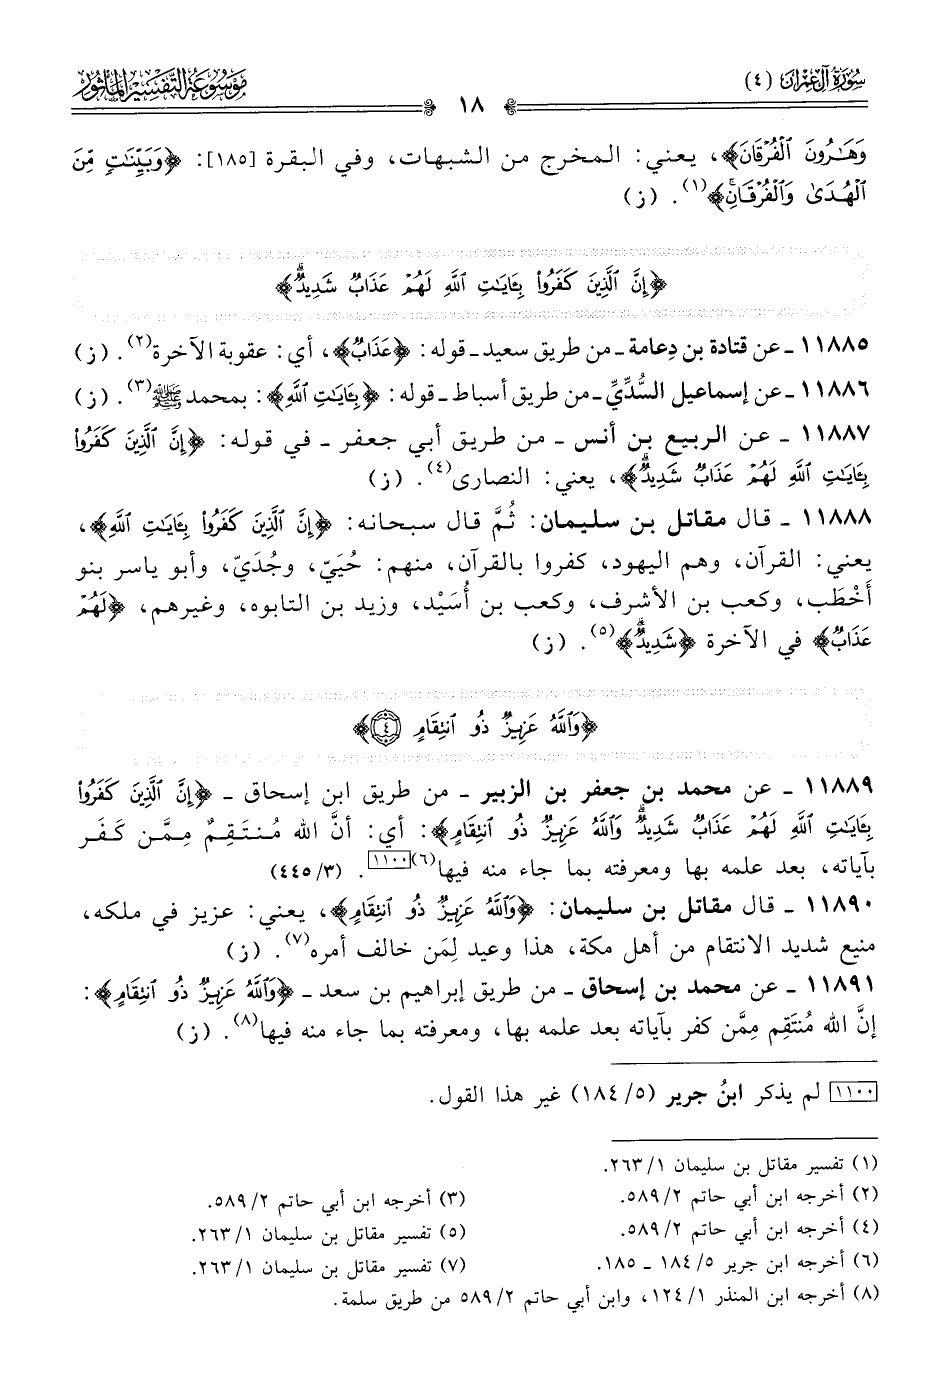 سُورَةُ آلِ عِمْرَان (٤)
١٨
مَوْسُوعَةُ التَّفْسِيرِ المَأْثُور
وَهَٰرُونَ ٱلْفُرْقَانَ﴾، يعني: المخرج من الشبهات، وفي البقرة [١٨٥]: ﴿وَبَيِّنَٰتٍ مِّنَ
ٱلْهُدَىٰ وَٱلْفُرْقَانِۚ﴾(١). (ز)
﴿إِنَّ ٱلَّذِينَ كَفَرُوا۟ بِـَٔايَٰتِ ٱللَّهِ لَهُمْ عَذَابٌ شَدِيدٌۗ﴾
١١٨٨٥ ـ عن قتادة بن دِعامة ـ من طريق سعيد ـ قوله: ﴿عَذَابٌ﴾، أي: عقوبة الآخرة(٢). (ز)
١١٨٨٦ ـ عن إسماعيل السُّدِّيِّ ـ من طريق أسباط ـ قوله: ﴿بِـَٔايَٰتِ ٱللَّهِ﴾: بمحمد ﷺ(٣). (ز)
١١٨٨٧ ـ عن الربيع بن أنس ـ من طريق أبي جعفر ـ في قوله: ﴿إِنَّ ٱلَّذِينَ كَفَرُوا۟
بِـَٔايَٰتِ ٱللَّهِ لَهُمْ عَذَابٌ شَدِيدٌۗ﴾، يعني: النصارى(٤). (ز)
١١٨٨٨ ـ قال مقاتل بن سليمان: ثُمَّ قال سبحانه: ﴿إِنَّ ٱلَّذِينَ كَفَرُوا۟ بِـَٔايَٰتِ ٱللَّهِ﴾،
يعني: القرآن، وهم اليهود، كفروا بالقرآن، منهم: حُيَيّ، وجُدَيّ، وأبو ياسر بنو
أَخْطَب، وكعب بن الأشرف، وكعب بن أُسَيْد، وزيد بن التابوه، وغيرهم، ﴿لَهُمْ
عَذَابٌ﴾ في الآخرة ﴿شَدِيدٌۗ﴾(٥). (ز)
﴿وَٱللَّهُ عَزِيزٌ ذُو ٱنتِقَامٍ ٤﴾
١١٨٨٩ ـ عن محمد بن جعفر بن الزبير ـ من طريق ابن إسحاق ـ ﴿إِنَّ ٱلَّذِينَ كَفَرُوا۟
بِـَٔايَٰتِ ٱللَّهِ لَهُمْ عَذَابٌ شَدِيدٌۗ وَٱللَّهُ عَزِيزٌ ذُو ٱنتِقَامٍ﴾: أي: أنَّ الله مُنتَقِمٌ مِمَّن كَفَر
بآياته، بعد علمه بها ومعرفته بما جاء منه فيها(٦)[١١٠٠]. (٣/ ٤٤٥)
١١٨٩٠ ـ قال مقاتل بن سليمان: ﴿وَٱللَّهُ عَزِيزٌ ذُو ٱنتِقَامٍ﴾، يعني: عزيز في ملكه،
منيع شديد الانتقام من أهل مكة، هذا وعيد لِمَن خالف أمره(٧). (ز)
١١٨٩١ ـ عن محمد بن إسحاق ـ من طريق إبراهيم بن سعد ـ ﴿وَٱللَّهُ عَزِيزٌ ذُو ٱنتِقَامٍ﴾:
إنَّ الله مُنتَقِم مِمَّن كفر بآياته بعد علمه بها، ومعرفته بما جاء منه فيها(٨). (ز)
[١١٠٠] لم يذكر ابنُ جرير (٥/ ١٨٤) غير هذا القول.
(١) تفسير مقاتل بن سليمان ١/ ٢٦٣.
(٢) أخرجه ابن أبي حاتم ٢/ ٥٨٩.
(٣) أخرجه ابن أبي حاتم ٢/ ٥٨٩.
(٤) أخرجه ابن أبي حاتم ٢/ ٥٨٩.
(٥) تفسير مقاتل بن سليمان ١/ ٢٦٣.
(٦) أخرجه ابن جرير ٥/ ١٨٤ ـ ١٨٥.
(٧) تفسير مقاتل بن سليمان ١/ ٢٦٣.
(٨) أخرجه ابن المنذر ١/ ١٢٤، وابن أبي حاتم ٢/ ٥٨٩ من طريق سلمة.